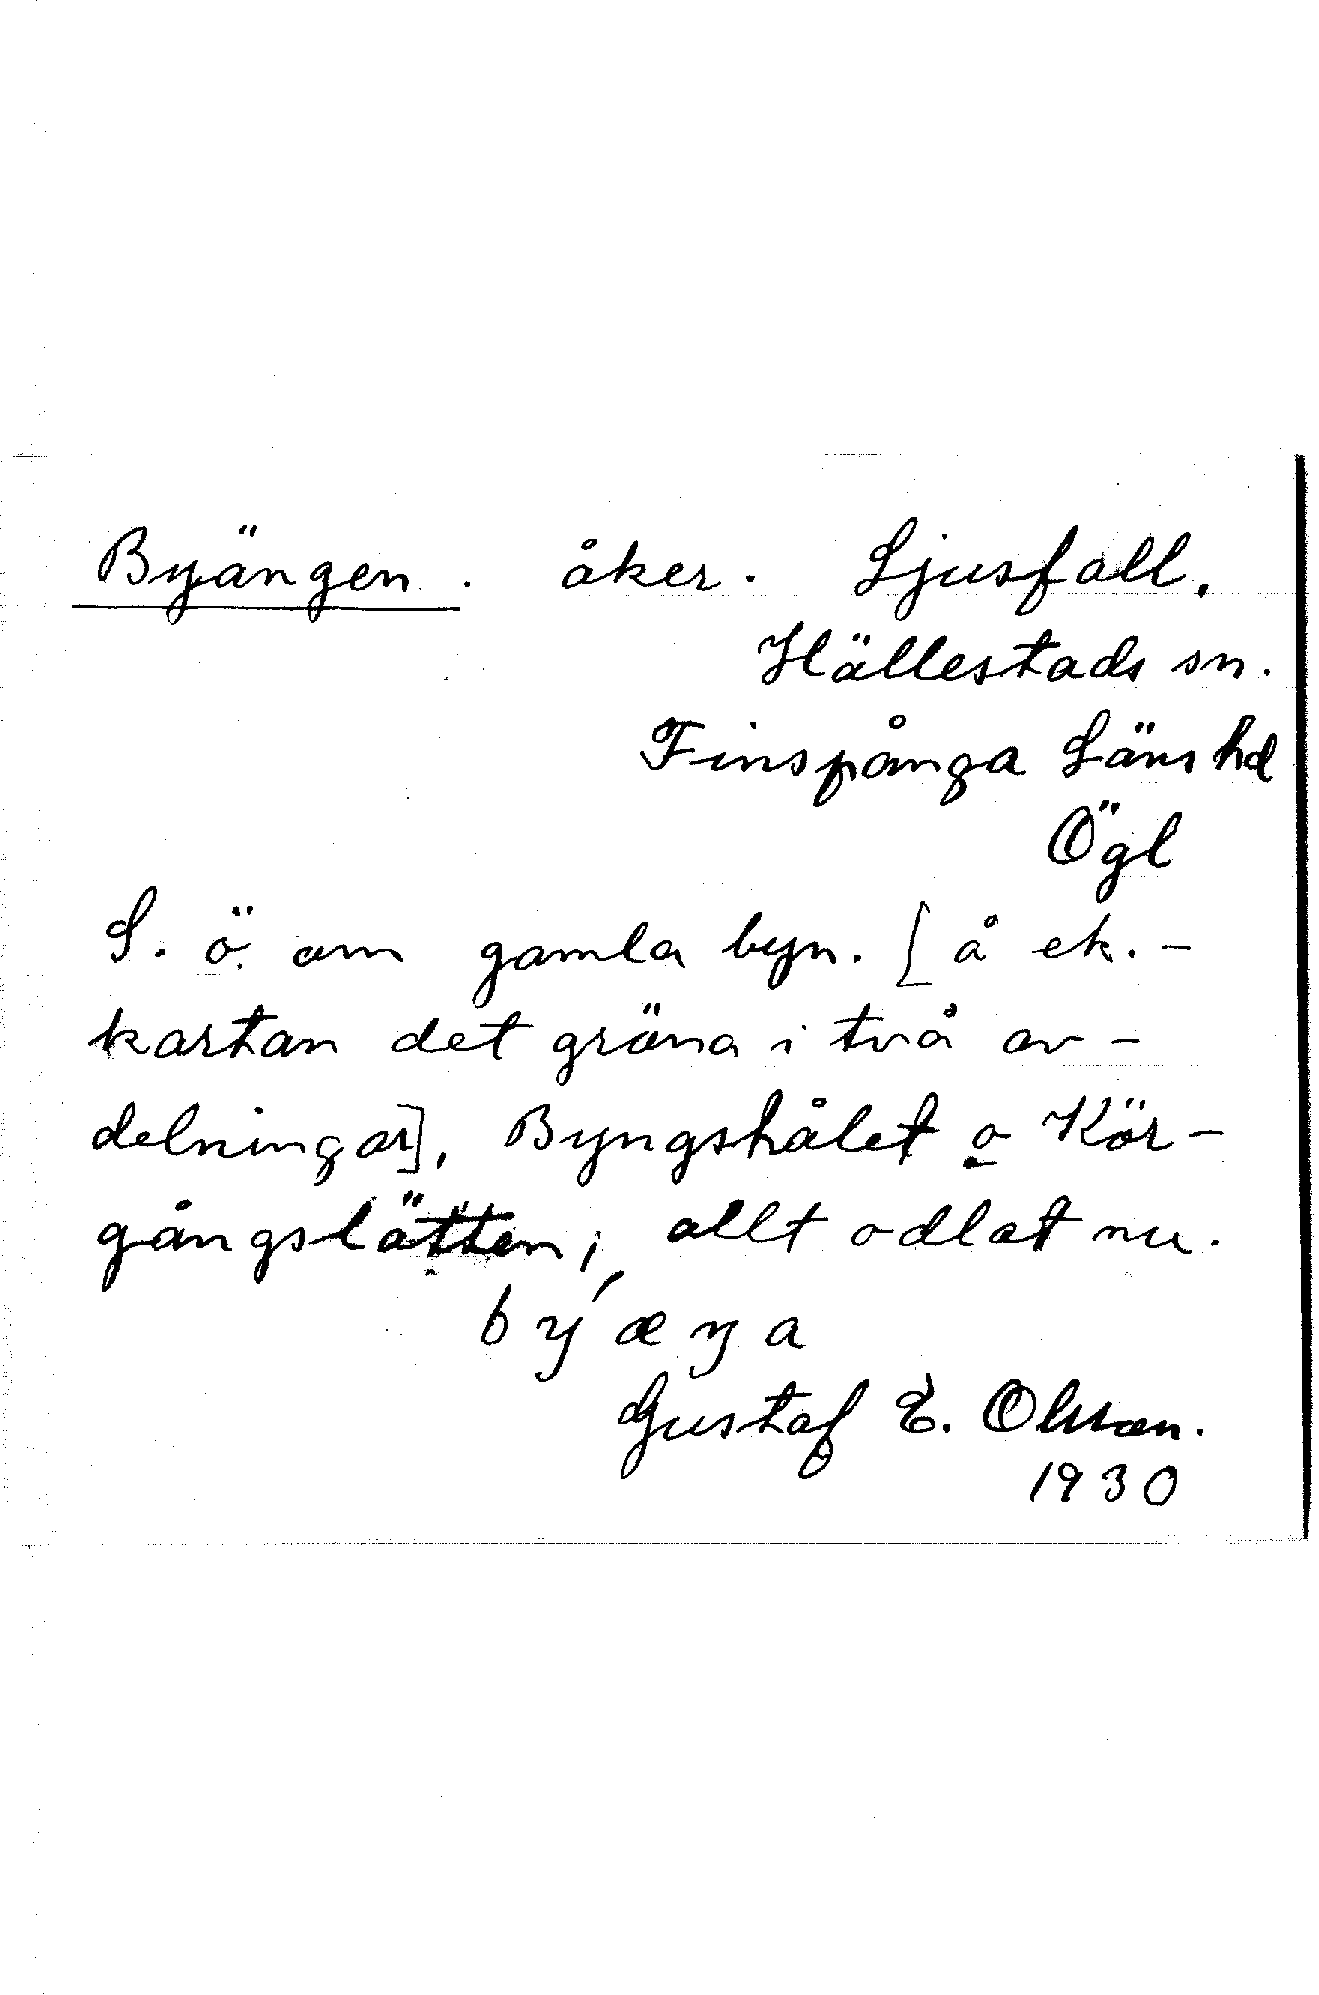 Byängen. åker. Ljusfall.
Hällestads sn.
Finspånga Läns hd
Ögl
S. ö. om gamla byn. [å ek.-
kartan det gröna i två av-
delningar], Byngshålet o Kör-
gångslätten; allt odlat nu.
bý æŋa
Gustaf E. Olsson.
1930